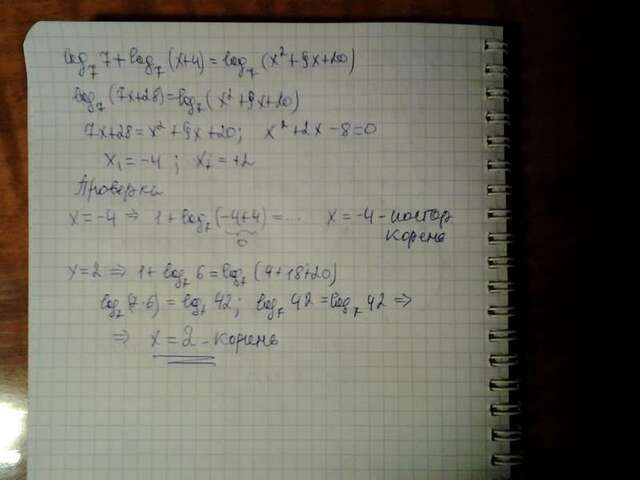 log₇ 7 + log₇ (x+4) = log₇ (x² + 9x + 20)
log₇ (7x+28) = log₇ (x² + 9x + 20)
7x+28 = x² + 9x + 20; x² + 2x - 8 = 0
x₁ = -4 ; x₂ = +2
Проверка
x = -4 ⇒ 1 + log₇ (-4+4) = ... x = -4 - постор
0 корень
x = 2 ⇒ 1 + log₇ 6 = log₇ (4+18+20)
log₇ (7·6) = log₇ 42; log₇ 42 = log₇ 42 ⇒
⇒ x = 2 - корень